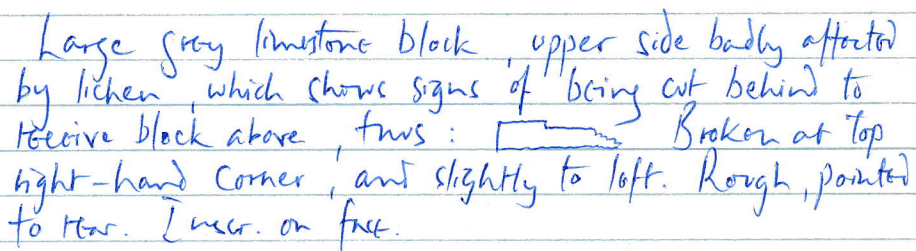 Large grey limestone block, upper side badly affected
by lichen, which shows signs of being cut behind to
receive block above, thus: Broken at top
right-hand corner, and slightly to left. Rough, pointed
to rear. Inscr. on face.